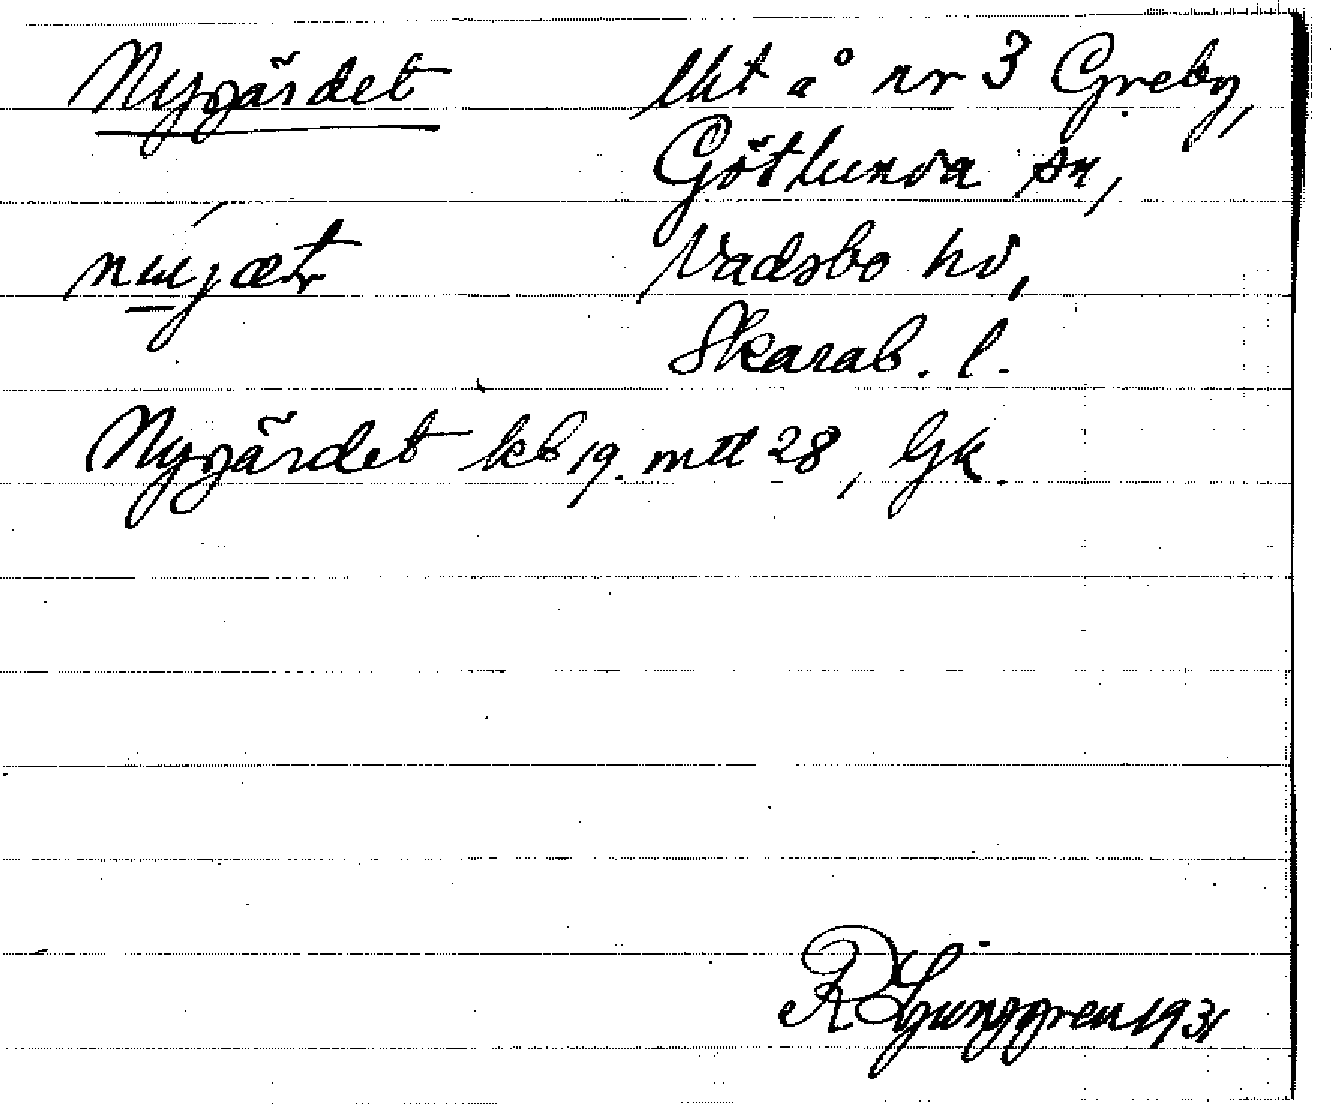 Nygärdet
lht å nr 3 Greby,
Götlunda sn,
Vadsbo hd,
Skarab. l.
Nygärdet kb 19. mtl 28, Gk.
R Ljunggren 1931